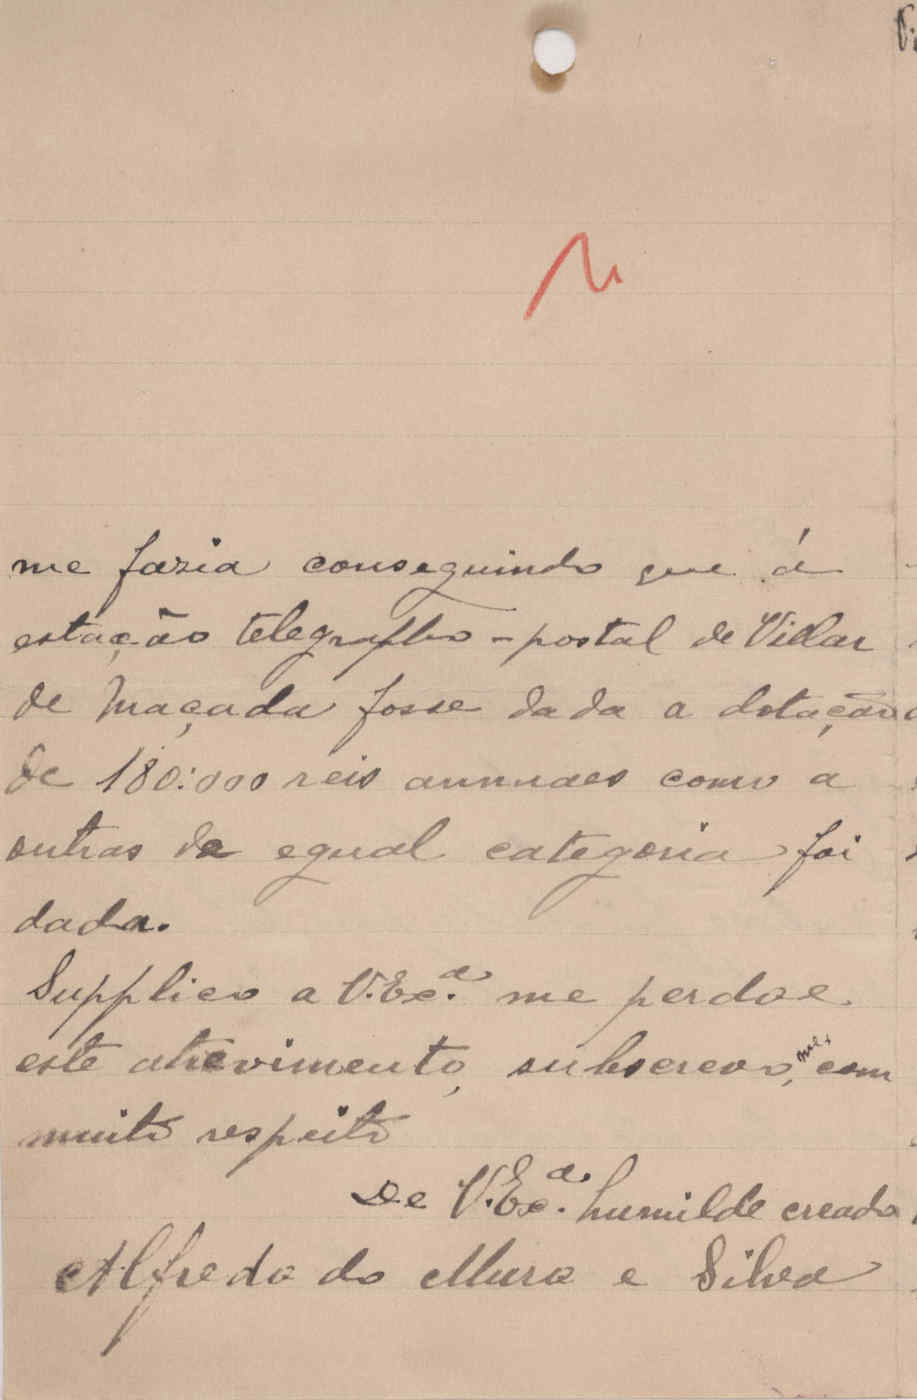 me fazia conseguindo que á
estação telegrapho-postal de Villar
de Maçada fosse dada a dotação
de 180:000 reis annuaes como a
outras de egual categoria foi
dada.
Supplico a V. Ex.ª me perdoe
este atrevimento, subscrevo, me, com
muito respeito
De V. Ex.ª humilde creado
Alfredo do Mura e Silva